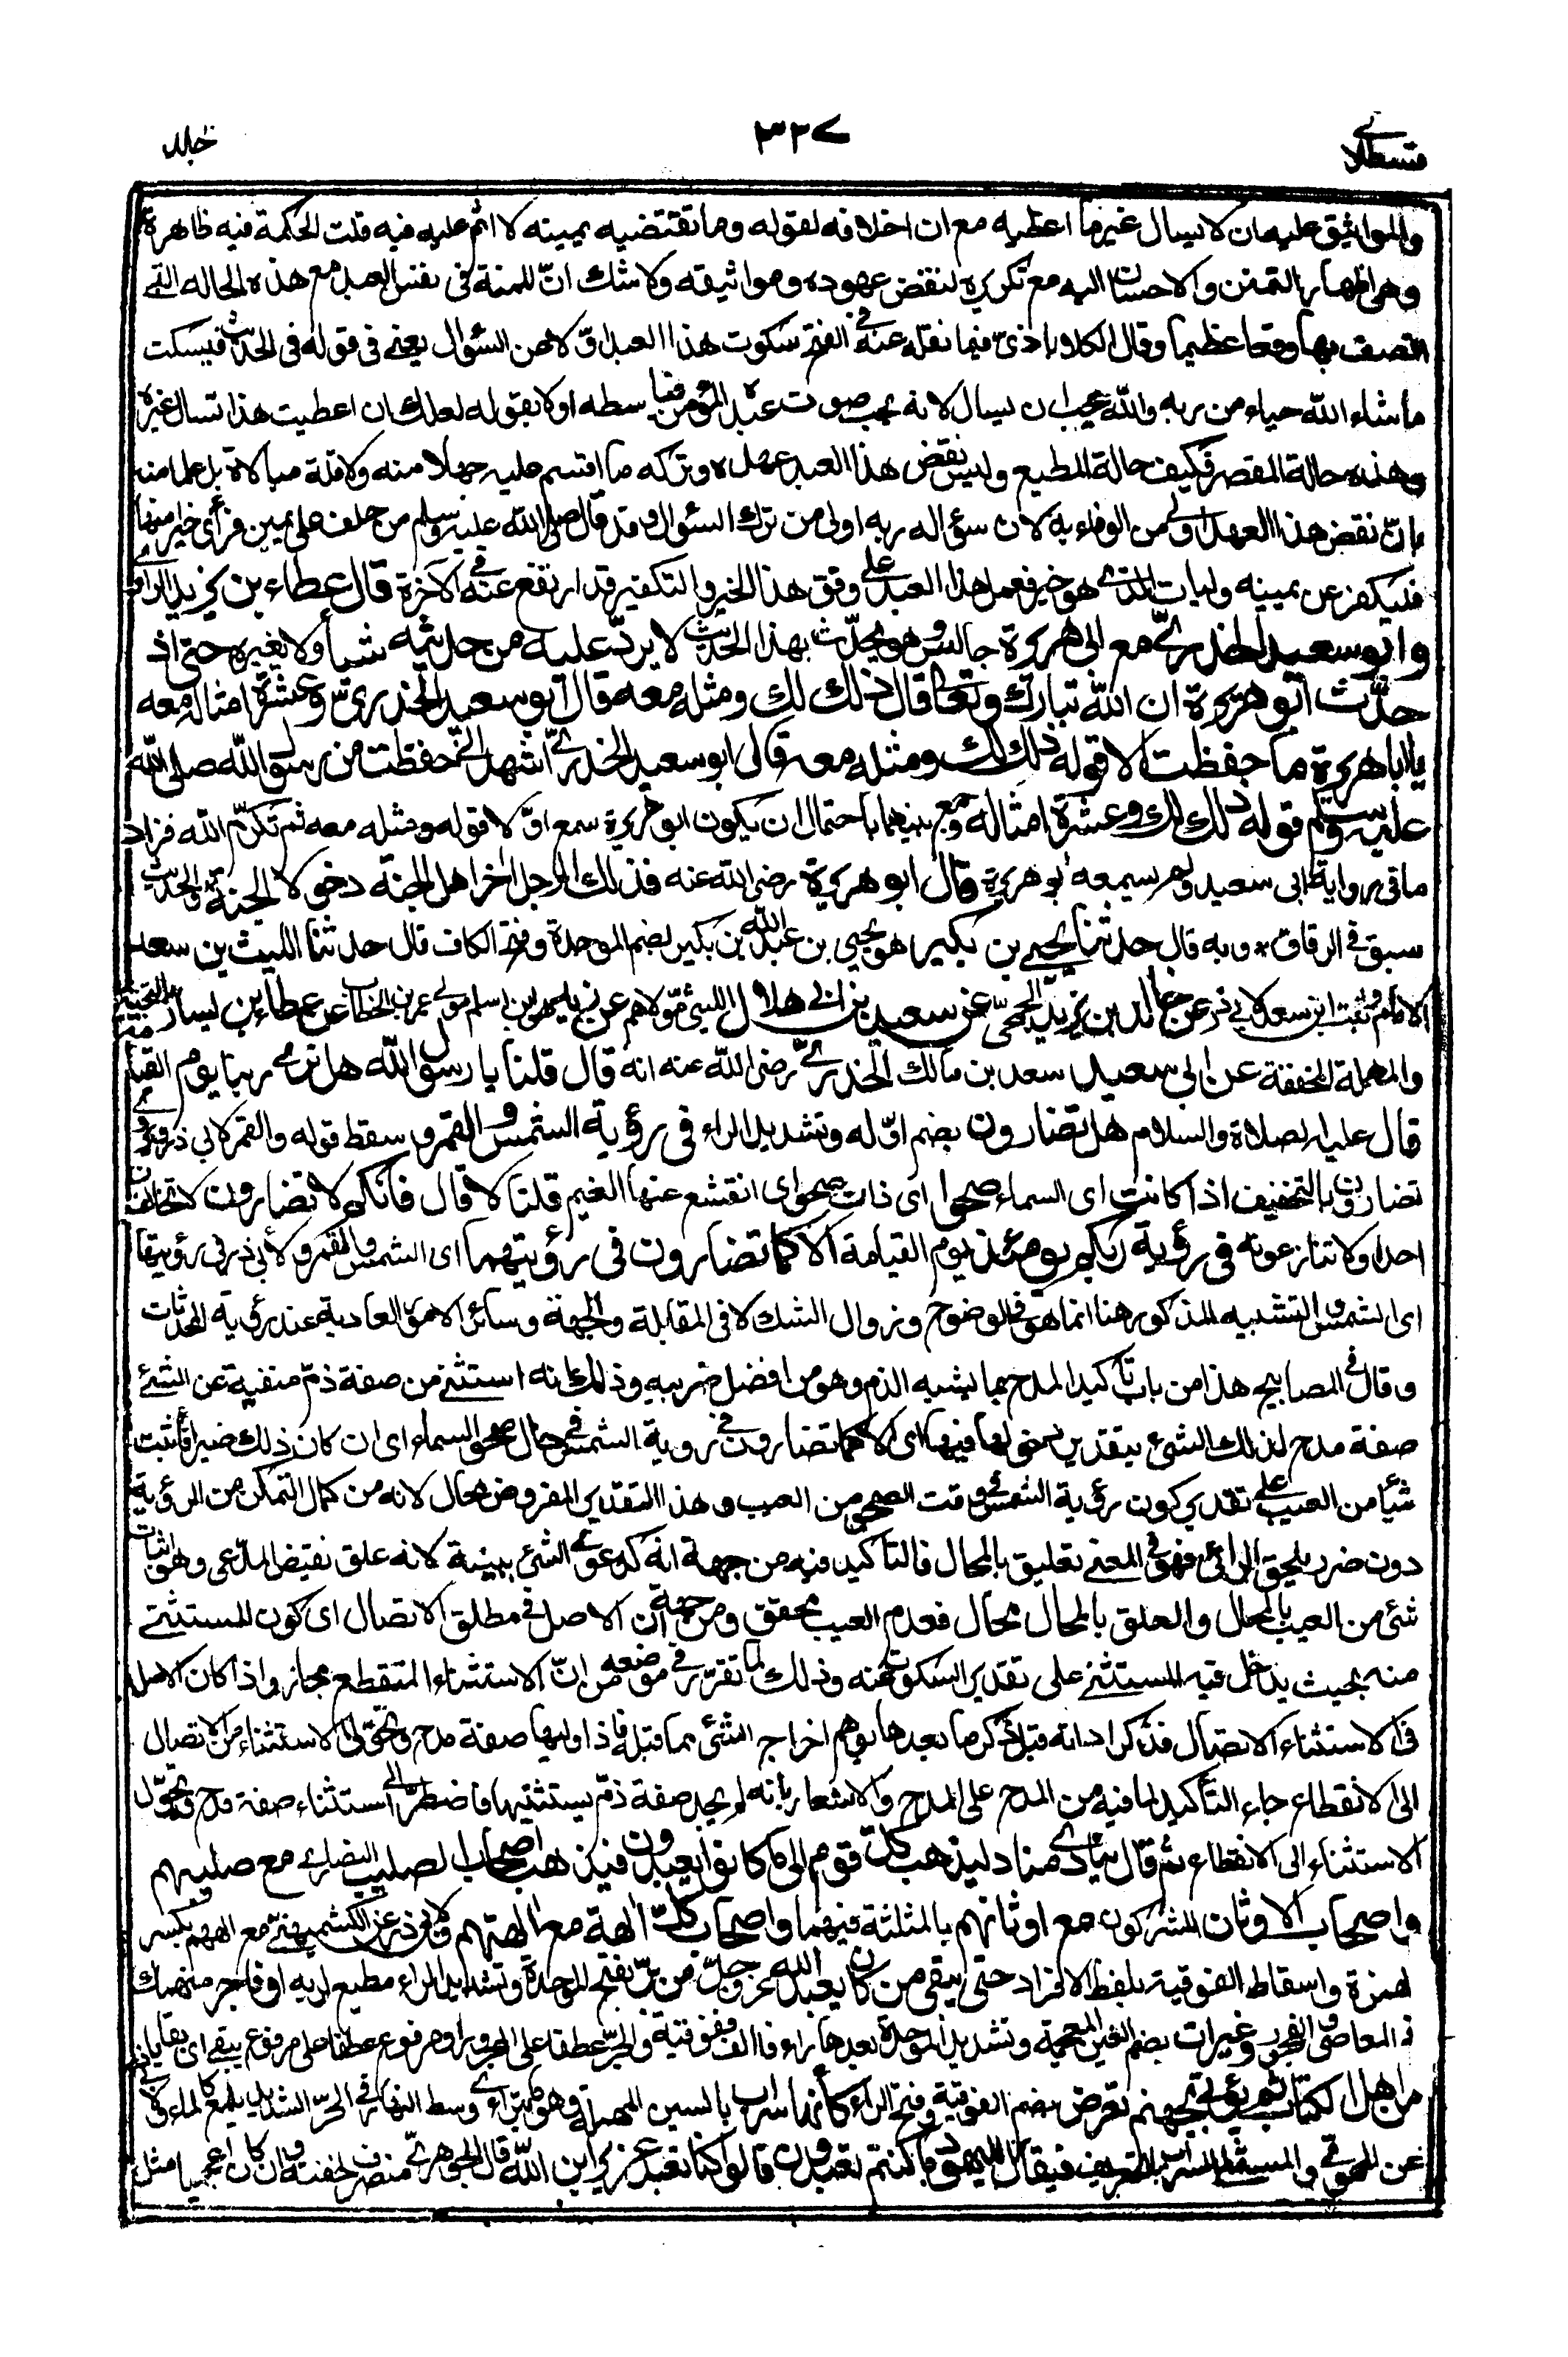 قسطلانے ٣٣٧ جلد
والمواثيق عليه ان لا يسال غير ما اعطيه مع ان اخلافه لقوله وما تقتضيه يمينه لا اثم عليه فيه قلت الحكمة فيه ظاهرة
وهى اظهار التمنن والاحسان اليه مع تكريره لنقض عهوده ومواثيقه ولا شك انّ للمنة فى نفس العبد مع هذه الحاله التے
اتصف بها وقعا عظيما وقال الكلاباذىّ فيما نقله عنه فى الفتح سكوت هذا العبد اوّلا عن السؤال يعنى فى قوله فى الحديث فيسكت
ما شاء الله حياء من ربه والله يحب ان يسال لانه يحب صوت عبده المؤمن فيباسطه اولا بقوله لعلك ان اعطيت هذا تسال غيره
وهذه حالة المقصر فكيف حالة المطيع وليس نقض هذا العبد عهده وتركه ما اقسم عليه جهلا منه ولا قلة مبالاة بل علما منه
بانّ نقض هذا العهد اولى من الوفاء به لان سؤاله ربه اولى من ترك السؤال وقد قال صلى الله عليه وسلم من حلف على يمين فرأى خيرا منها
فليكفر عن يمينه وليات الذى هو خير فعمل هذا العبد على وفق هذا الخبر والتكفير قد ارتفع عنه فى الآخرة قال عطاء بن يزيد الراوى
وابو سعيد الخدريّ مع ابى هريرة جالس وهو يحدّث بهذا الحديث لا يردّ عليه من حديثه شيأ ولا يغيره حتى اذ
حدّث ابو هريرة ان الله تبارك وتعالى قال ذلك لك ومثله معه قال ابو سعيد الخدرىّ وعشرة امثاله معه
يا ابا هريرة ما حفظت الا قوله ذلك لك ومثله معه قال ابو سعيد الخدريّ اشهد انّى حفظت من رسول الله صلى الله
عليه وسلم قوله ذلك لك وعشرة امثاله وجمع بينهما باحتمال ان يكون ابو هريرة سمع اوّلا قوله ومثله معه ثم تكرّم الله فزاد
ما فى رواية ابى سعيد ولم يسمعه ابو هريرة قال ابو هريرة رضى الله عنه فذلك الرجل اخر اهل الجنة دخولا الجنة والحديث
سبق فى الرقاق * وبه قال حدثنا يحيى بن بكير هو يحيى بن عبد الله بن بكير بضم الموحدة وفتح الكاف قال حدثنا الليث بن سعد
الامام وثبت ابن سعد لابى ذر عن خالد بن يزيد الجمحىّ عن سعيد بن ابى هلال الليثىّ مولاهم عن زيد هو ابن اسلم مولى عمر بن الخطاب عن عطاء بن يسار
والمهملة المخففة عن ابى سعيد سعد بن مالك الخدريّ رضى الله عنه انه قال قلنا يا رسول الله هل نرى ربنا يوم القيامة
قال عليه الصلاة والسلام هل تضارون بضم اوّله وتشديد الراء فى رؤية الشمس والقمر وسقط قوله والقمر لابى ذر ويروى
تضارون بالتخفيف اذا كانت اى السماء صحوا اى ذات صحو اى انقشع عنها الغيم قلنا لا قال فانكم لا تضارون لا تخالفون
احدا ولا تنازعونه فى رؤية ربكم يومئذ يوم القيامة الا كما تضارون فى رؤيتهما اى الشمس والقمر ولأبى ذر فى رؤيتها
اى الشمس والتشبيه المذكور هنا انما هو فى الوضوح وزوال الشك لا فى المقابلة والجهة وسائر الامور العادية عند رؤية المحدثات
وقال فى المصابيح هذا من باب تأكيد المدح بما يشبه الذم وهو من افضل ضربيه وذلك انه استثنى من صفة ذمّ منفية عن الشئ
صفة مدح لذلك الشئ بتقدير دخولها فيها اى الا كما تضارون فى رؤية الشمس فى حال صحو السماء اى ان كان ذلك ضيرا فأثبت
شيأ من العيب على تقدير كون رؤية الشمس وقت الصحو من العيب وهذا التقدير المفروض محال لانه من كمال التمكن من الرؤية
دون ضرر يلحق الرائى فهو فى المعنى تعليق بالمحال فالتأكيد فيه من جهة انه كدعوى الشئ ببينة لانه علق نقيض المدّعى وهو اثبات
شئ من العيب بالمحال والمعلق بالمحال محال فعدم العيب محقق ومن جهة ان الاصل فى مطلق الاتصال اى كون المستثنى
منه بحيث يدخل فيه المستثنى على تقدير السكوت عنه وذلك لما تقرّر فى موضعه من انّ الاستثناء المنقطع مجاز واذا كان الاصل
فى الاستثناء الاتصال فذكر اداته قبل ذكر ما بعدها يوهم اخراج الشئ مما قبله فاذا وليها صفة مدح وتحوّل الاستثناء من الاتصال
الى الانقطاع جاء التأكيد لما فيه من المدح على المدح والاشعار بأنه لم يجد صفة ذمّ يستثنيها فاضطرّ الى استثناء صفة مدح وتحوّل
الاستثناء الى الانقطاع ثم قال ينادى مناد ليذهب كلّ قوم الى ما كانوا يعبدون فيذهب اصحاب الصليب النصارى مع صليبهم
واصحاب الاوثان المشركون مع اوثانهم بالمثلثة فيهما واصحاب كلّ الهة مع الهتهم ولابى ذر عن الكشميهنىّ مع الههم بكسر
الهمزة واسقاط الفوقية بلفظ الافراد حتى يبقى من كان يعبد الله عز وجلّ من برّ بفتح الموحدة وتشديد الراء مطيع لربه او فاجر منهمك
فى المعاصى والفجور وغبرات بضم الغين المعجمة وتشديد الموحدة بعدها راء فالف ففوقية والجرّ عطفا على المجرور او مرفوع عطفا على مرفوع يبقى اى بقايا
من اهل الكتاب ثم يؤتى بجهنم تعرض بضم الفوقية وفتح الراء كأنها سراب بالسين المهملة وهو ما يتراءى وسط النهار فى الحرّ الشديد يلمع كالماء
عن الحموىّ والمستملى السراب بالتعريف فيقال لليهود ما كنتم تعبدون قالوا كنا نعبد عزير ابن الله قال الجوهرىّ منصرف لخفته وان كان اعجميا مثل